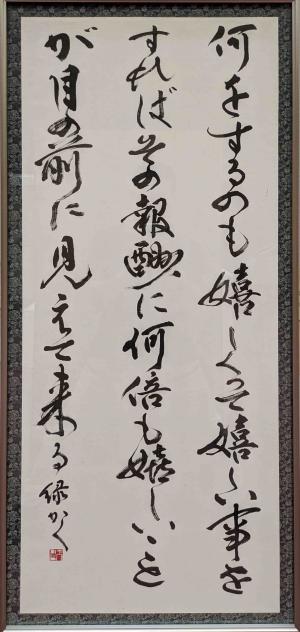 何をするのも嬉しくって嬉しい事を
すればその報酬に何倍も嬉しいこと
が目の前に見えて来る 緑かく